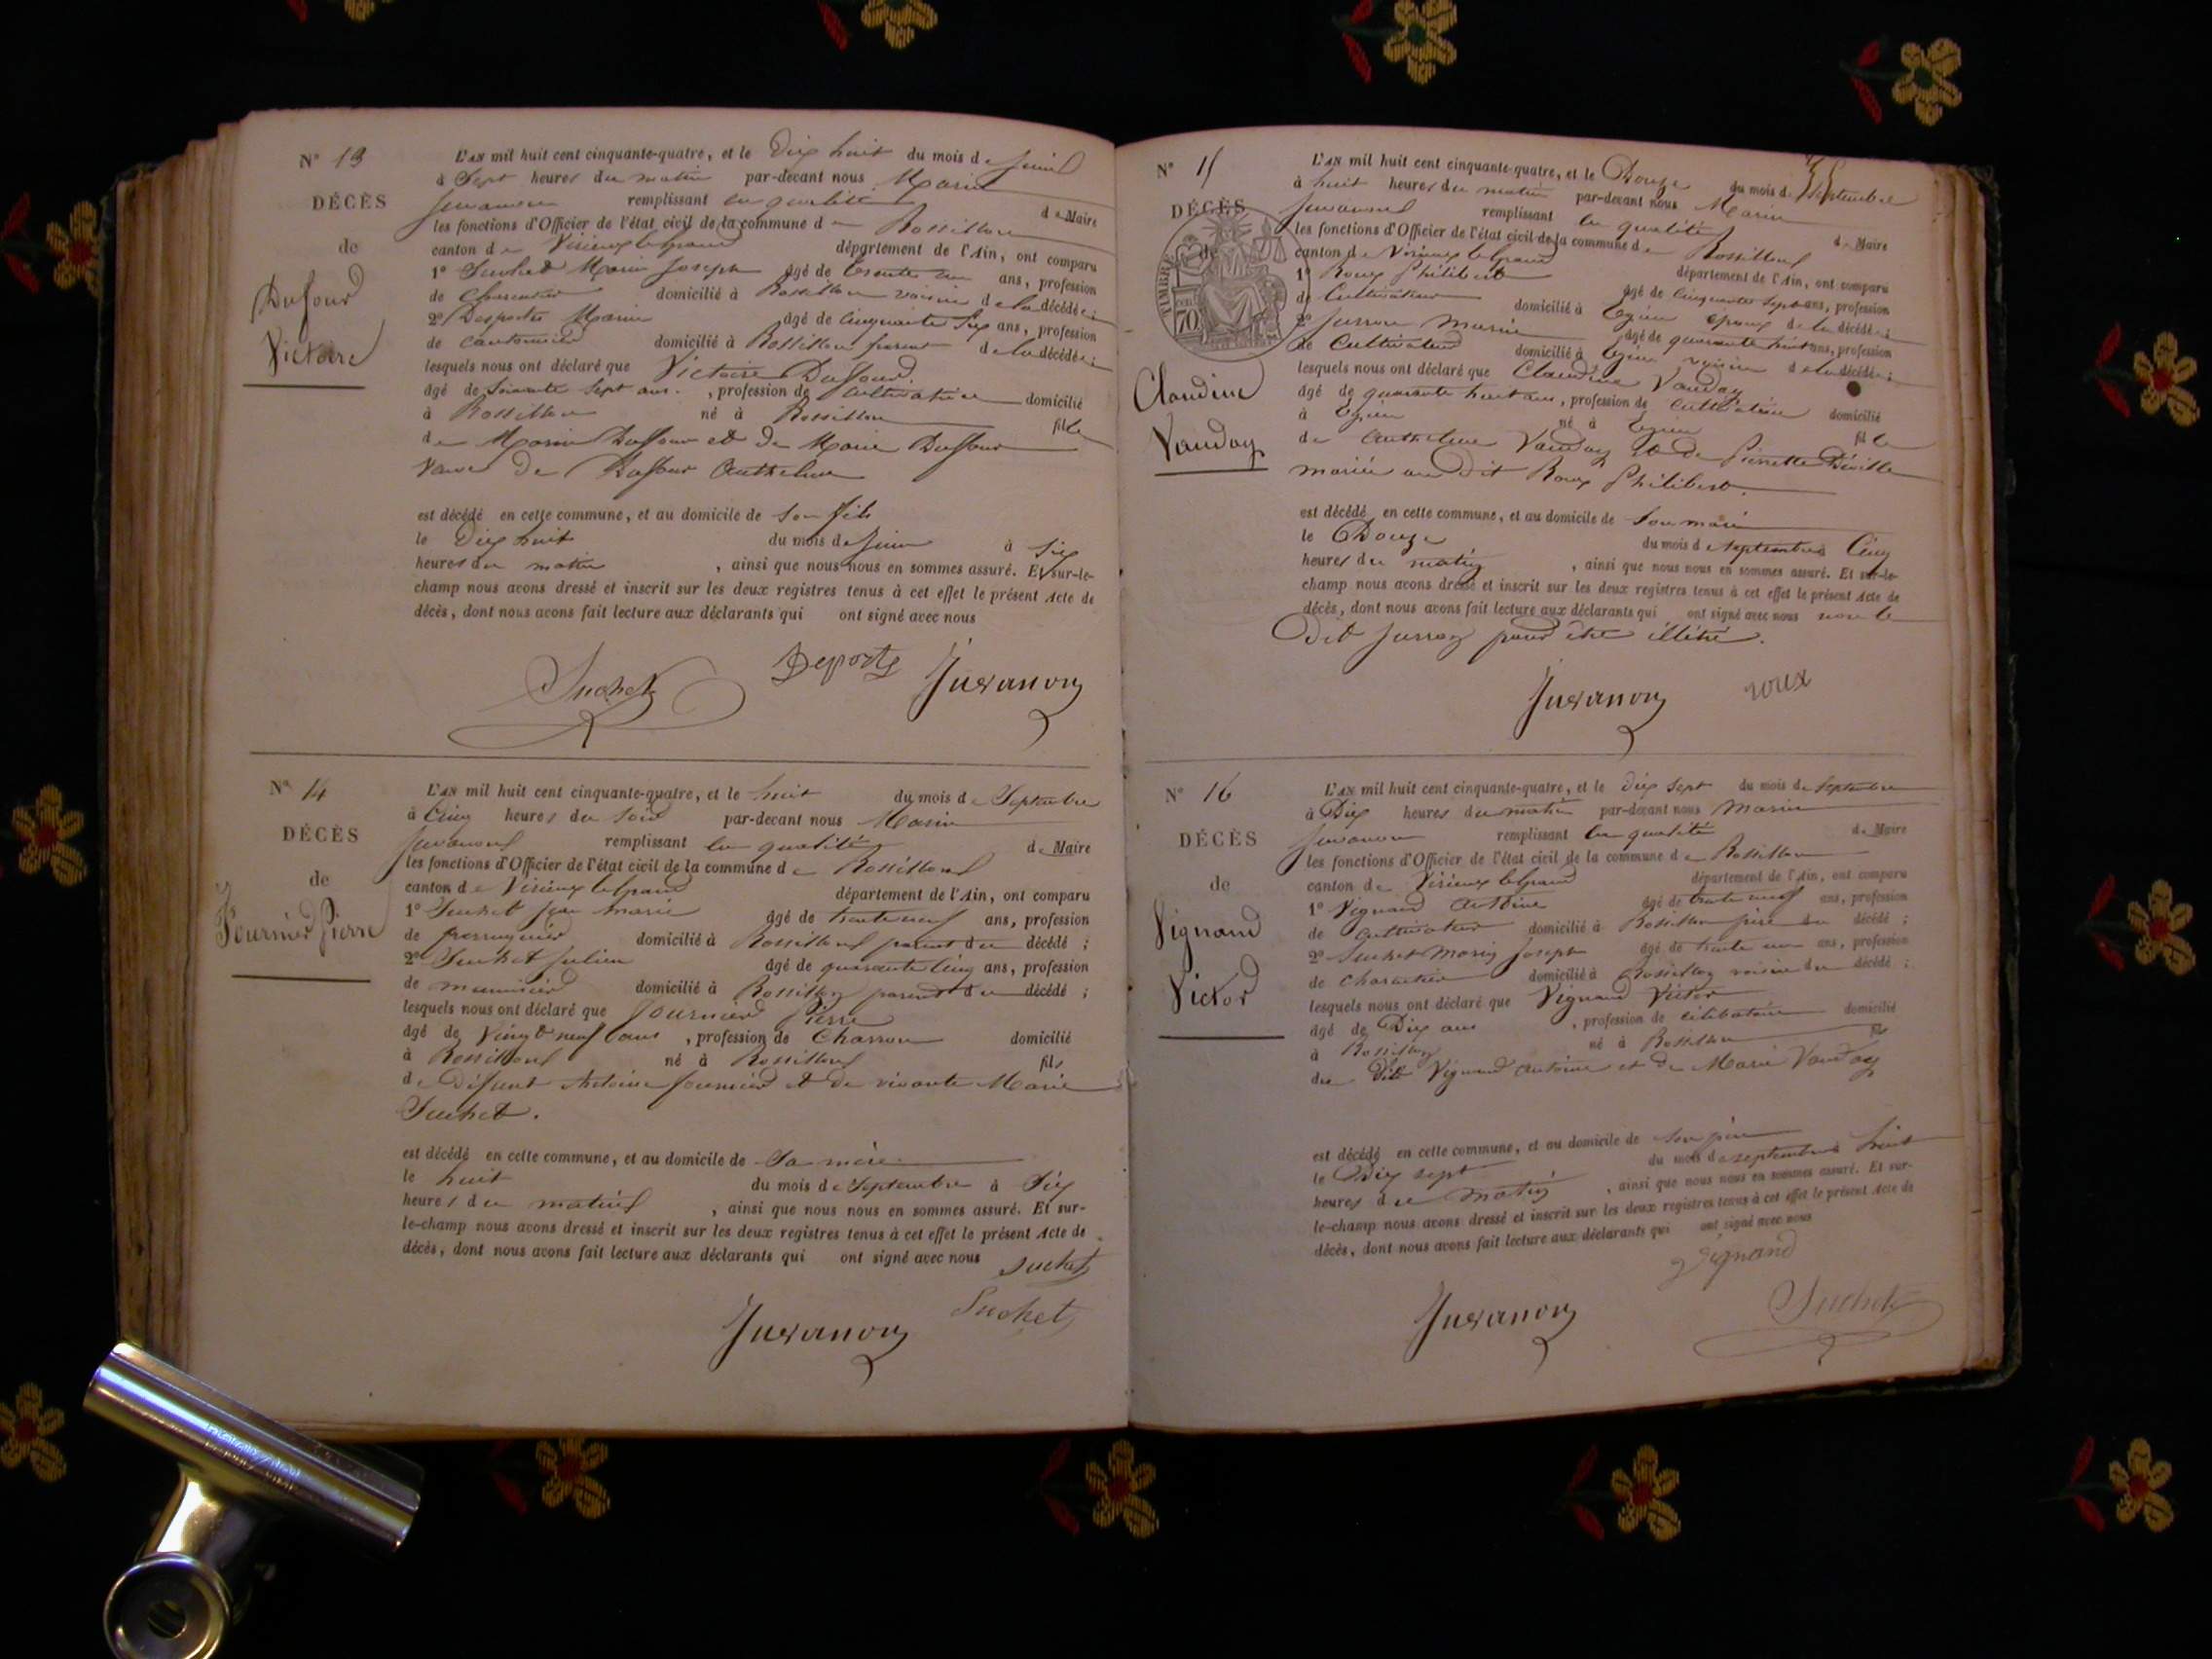 N° 13
DÉCÈS
de
Dufour
Victoire
L'AN mil huit cent cinquante-quatre, et le Dix huit du mois de juin
à Sept heures du matin par-devant nous Marin
Juvanon remplissant en qualité de Maire
les fonctions d'Officier de l'état civil de la commune de Rossillon
canton de Virieux le grand département de l'Ain, ont comparu
1° Suchet Marin Joseph âgé de trente un ans, profession
de Charentier domicilié à Rossillon voisin de la décédée;
2° Desportes Marin âgé de cinquante six ans, profession
de cantonnier domicilié à Rossillon parent de la décédée;
lesquels nous ont déclaré que Victoire Dufour
âgé de soixante sept ans, profession de Cultivatrice domicilié
à Rossillon né à Rossillon fille
de Marin Duffour et de Marie Duffour
veuve de Duffour Anthelme
est décédé en cette commune, et au domicile de son fils
le Dix huit du mois de juin à Six
heures du matin, ainsi que nous nous en sommes assuré. Et sur-le-
champ nous avons dressé et inscrit sur les deux registres tenus à cet effet le présent Acte de
décès, dont nous avons fait lecture aux déclarants qui ont signé avec nous
Suchet Deportes Juvanon
N° 14
DÉCÈS
de
Fournier Pierre
L'AN mil huit cent cinquante-quatre, et le huit du mois de Septembre
à Cinq heures du soir par-devant nous Marin
Juvanon remplissant en qualité de Maire
les fonctions d'Officier de l'état civil de la commune de Rossillon
canton de Virieux le grand département de l'Ain, ont comparu
1° Suchet Jean marie âgé de trente neuf ans, profession
de domicilié à Rossillon parent du décédé;
2° Suchet Julien âgé de quarante cinq ans, profession
de menuisier domicilié à Rossillon parent du décédé;
lesquels nous ont déclaré que Fournier Pierre
âgé de vingt neuf ans, profession de Charron domicilié
à Rossillon né à Rossillon fils
de Défunt Antoine fournier et de vivante Marie
Suchet.
est décédé en cette commune, et au domicile de Sa mère
le huit du mois de Septembre à Six
heures du matin, ainsi que nous nous en sommes assuré. Et sur-
le-champ nous avons dressé et inscrit sur les deux registres tenus à cet effet le présent Acte de
décès, dont nous avons fait lecture aux déclarants qui ont signé avec nous suchet
Suchet
Juvanon
N° 15
DÉCÈS
de
TIMBRE
70
Claudine
Vauday
L'AN mil huit cent cinquante-quatre, et le Douze du mois de Septembre
à huit heures du matin par-devant nous Marin
Juvanon remplissant en qualité de Maire
les fonctions d'Officier de l'état civil de la commune de Rossillon
canton de Virieux le grand département de l'Ain, ont comparu
1° Roux Philibert âgé de cinquante sept ans, profession
de Cultivateur domicilié à époux de la décédée;
2° Jurron marin âgé de quarante huit ans, profession
de Cultivateur domicilié à voisin de la décédée;
lesquels nous ont déclaré que Claudine Vauday
âgé de quarante huit ans, profession de cultivatrice domicilié
à né à fille
de Anthelme Vauday et de Pierrette
mariée au Dit Roux Philibert.
est décédé en cette commune, et au domicile de Son mari
le Douze du mois de septembre Cinq
heures du matin, ainsi que nous nous en sommes assuré. Et sur-le-
champ nous avons dressé et inscrit sur les deux registres tenus à cet effet le présent Acte de
décès, dont nous avons fait lecture aux déclarants qui ont signé avec nous non le
Dit Jurron pour être illétré.
Juvanon roux
N° 16
DÉCÈS
de
Vignand
Victor
L'AN mil huit cent cinquante-quatre, et le dix sept du mois de septembre
à Dix heures du matin par-devant nous Marin
Juvanon remplissant en qualité de Maire
les fonctions d'Officier de l'état civil de la commune de Rossillon
canton de Virieux le grand département de l'Ain, ont comparu
1° Vignand Antoine âgé de trente neuf ans, profession
de Cultivateur domicilié à Rossillon père du décédé;
2° Suchet Marin Joseph âgé de trente un ans, profession
de Charentier domicilié à Rossillon voisin du décédé;
lesquels nous ont déclaré que Vignand Victor
âgé de Dix ans, profession de célibataire domicilié
à Rossillon né à Rossillon fils
du Dit Vignand Antoine et de Marie Vauday
est décédé en cette commune, et au domicile de son père
le Dix sept du mois de septembre huit
heures du matin, ainsi que nous nous en sommes assuré. Et sur-
le-champ nous avons dressé et inscrit sur les deux registres tenus à cet effet le présent Acte de
décès, dont nous avons fait lecture aux déclarants qui ont signé avec nous
Vignand
Juvanon Suchet